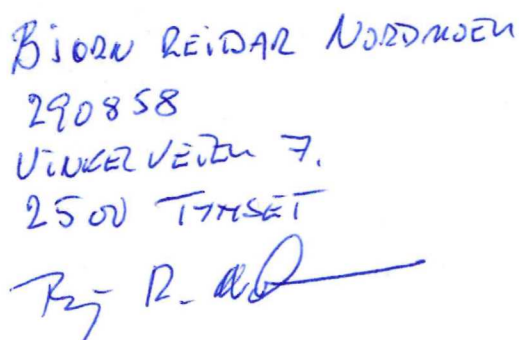 BJORN REIDAR NORDMOEN
290858
VINKELVEIEN 7.
2500 TYNSET